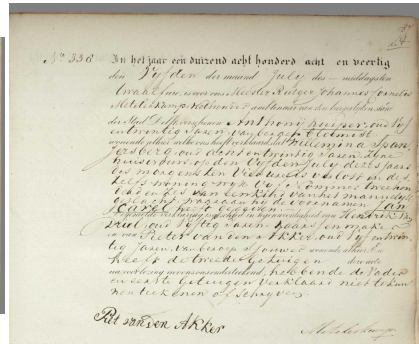 No. 336
In het jaar een duizend acht honderd acht en veertig
den Vijfden der maand July des middags ten
twaalf ure, is voor ons Meester Rutger Johannes Cornelis
Metelerkamp Wethouder ambtenaar van den burgerlijken stand
der Stad Delfshaven Anthonij oud vijf
en twintig Jaren, van beroep
wonende alhier, welke ons heeft verklaard dat Willemina
oud drie en twintig Jaren, Zyne
huisvrouw op den Vijfden July dezes Jaars
des morgens ten Vier ure is verlost in
woning wijk Vijf nommer twee hon
van een kind van het mannelijk
geslacht, waaraan zij de voornamen Jan
Carel heeft gegeven
verklaring is geschied in tegenwoordigheid van Hendrik
oud Vijftig Jaren
en van Pieter van den Akker, oud Vijf en twin
tig Jaren, van beroep Sjouwer wonende alhier
heeft de tweede Getuigen deze acte
na voorlezing met ons onderteekend, hebbende de Vader
en eerste Getuigen verklaard niet te kun
nen teekenen of schryven
Piet van den Akker
Metelerkamp